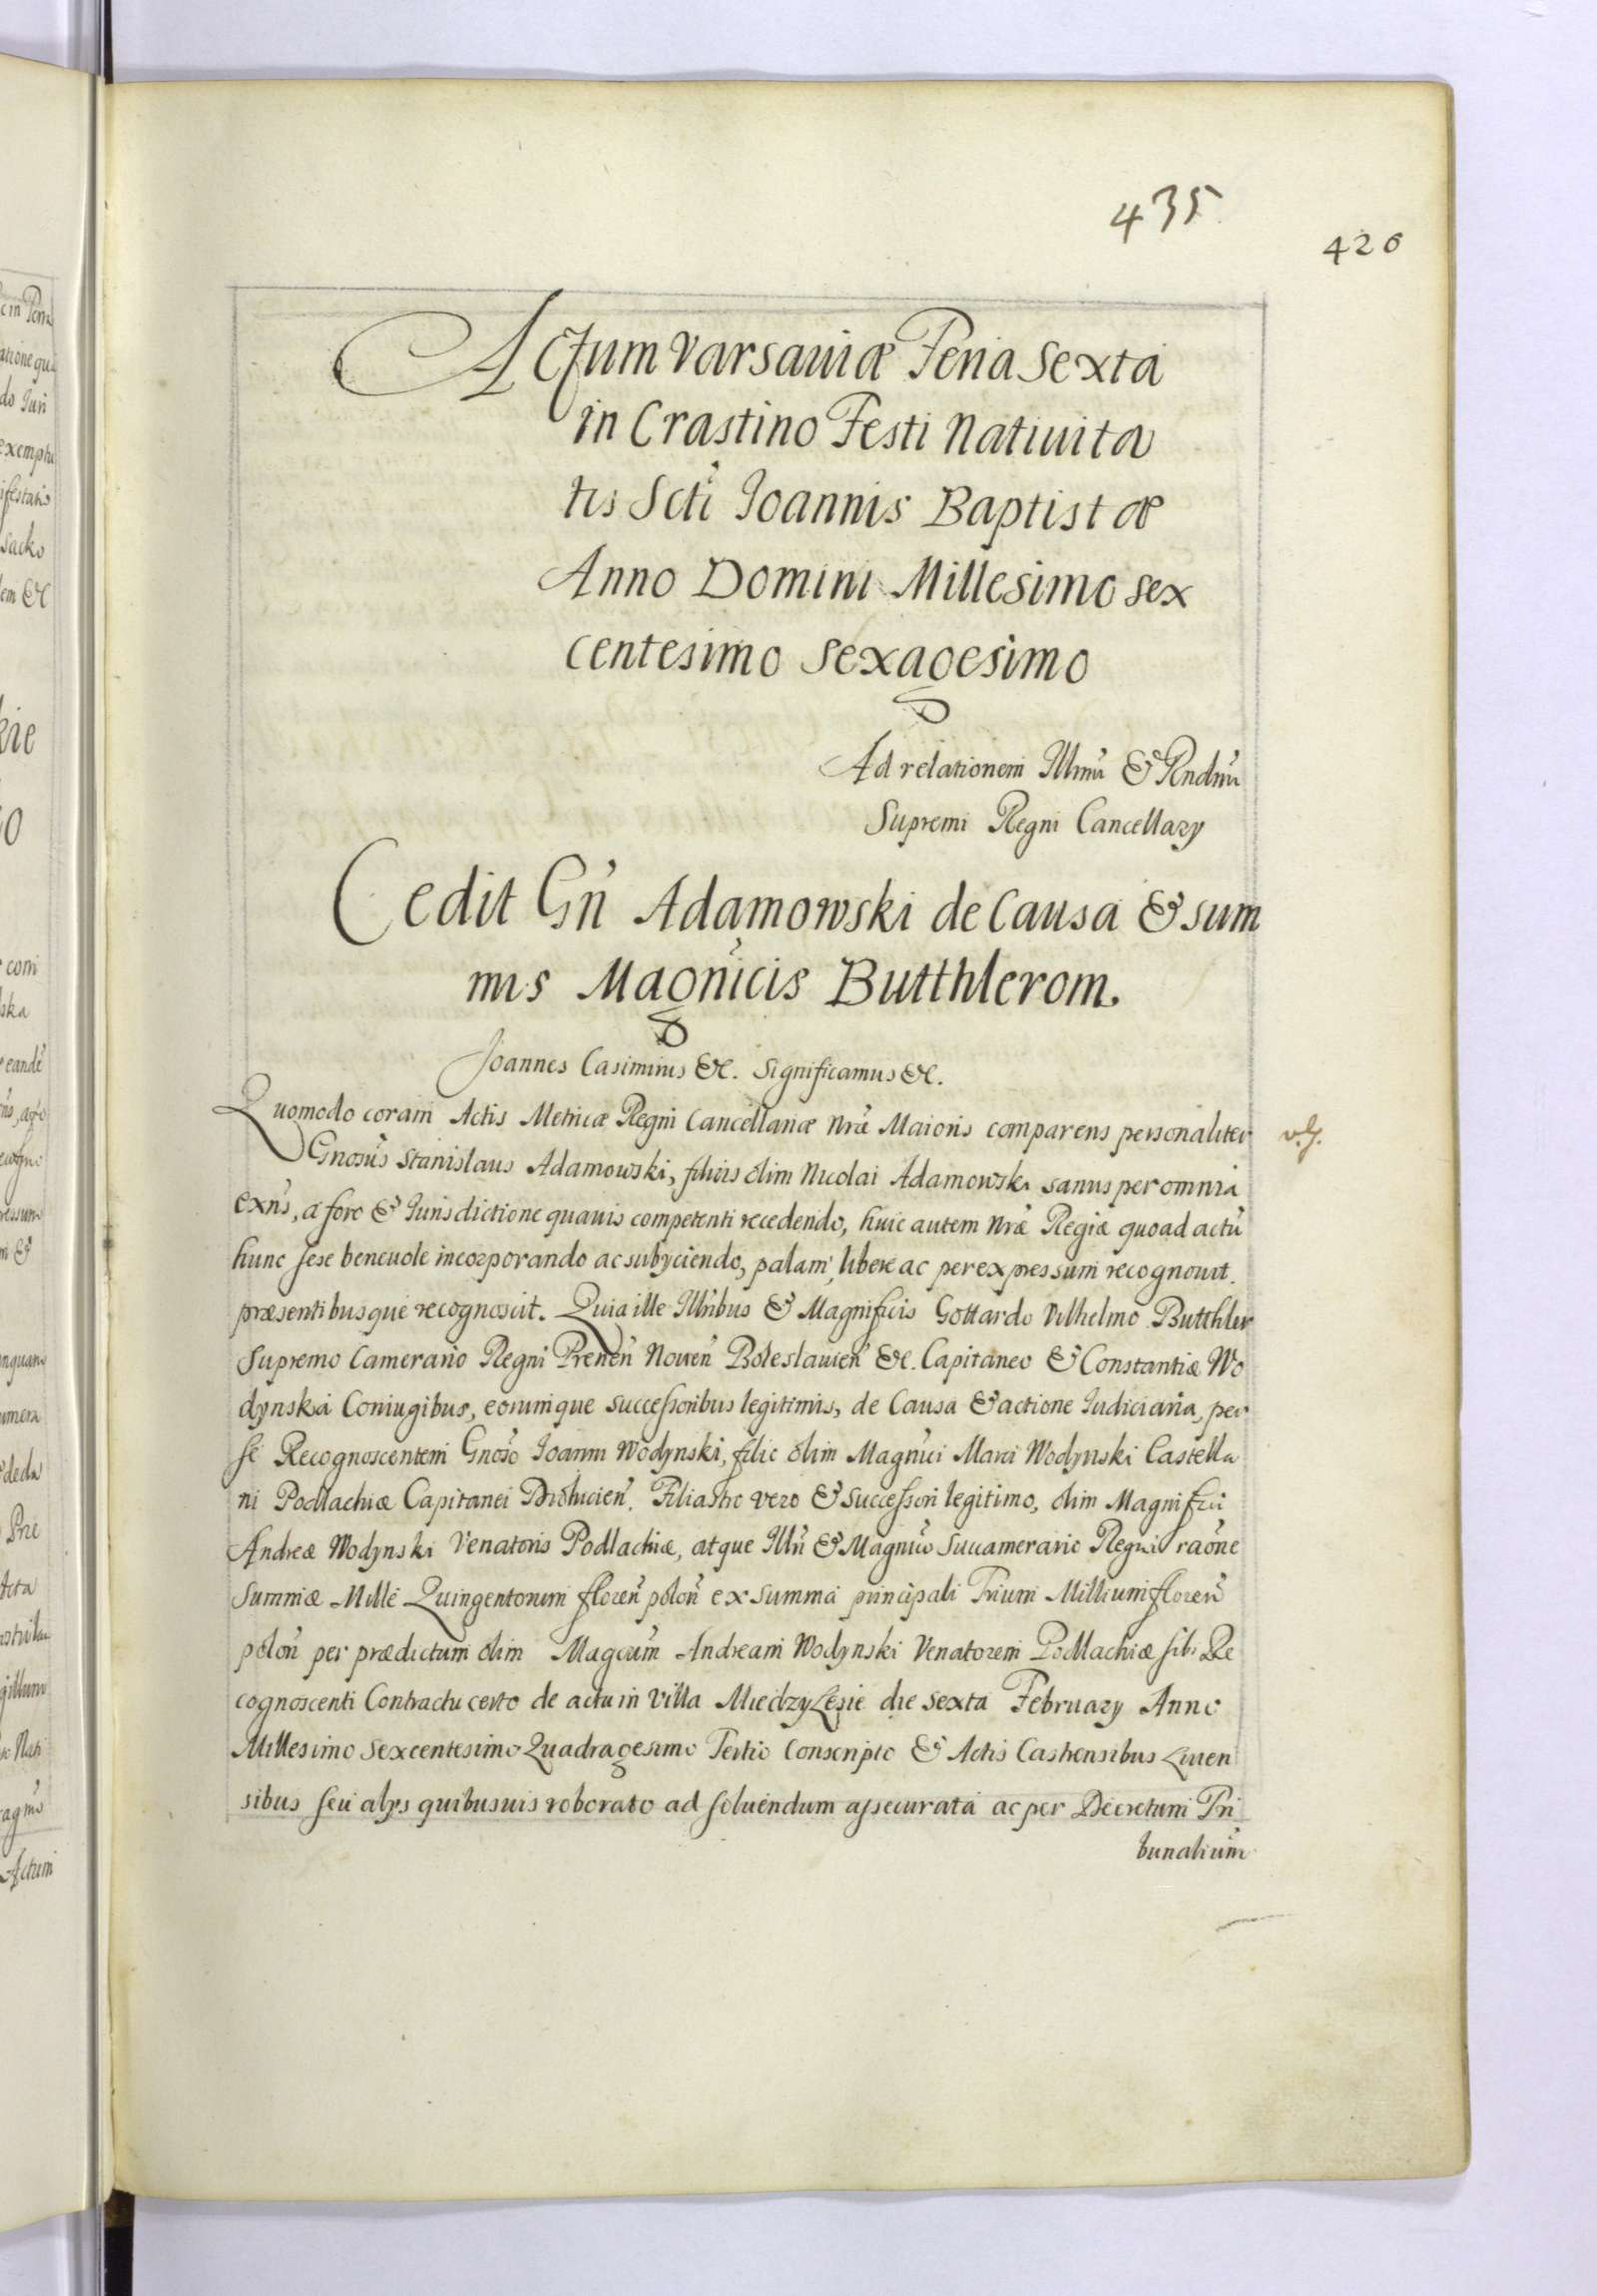 435
426
Actum Varsaviæ Feria Sexta
in Crastino Festi Natiuita
tis Scti Joannis Baptistæ
Anno Domini Millesimo sex
centesimo Sexagesimo
Ad relationem Illmi & Rndmi
Supremi Regni Cancellary
Cedit Gn Adamowski de Causa & sum
mis Magnicis Butthlerom.
Joannes Casimirus &c. Significamus &c.
Quomodo coram Actis Metricæ Regni Cancellariæ nræ Maioris comparens personaliter
Gnosus Stanislaus Adamowski, filius olim Nicolai Adamowski sanus per omnia
exns, a foro & Iurisdictione quauis competenti recedendo, huic autem nræ Regiæ quoad actu
hunc sese beneuole incorporando ac subyciendo, palam, libere ac per expressum recognouit.
præsentibusque recognoscit. Quia ille Illribus & Magnificis Gottardo Vilhelmo Butthler
Supremo Camerario Regni Prenen Nouen Boleslauien &c. Capitaneo & Constantiæ Wo
dynska Coniugibus, eorumque successoribus legitimis, de Causa & actione Iudiciaria, per
se Recognoscentem Gnoso Joanni Wodynski, filio olim Magnici Marci Wodynski Castella
ni Podlachiæ Capitanei Drohicien. Filiastro vero & successori legitimo, olim Magnifici
Andreæ Wodynski Venatoris Podlachiæ, atque Illri & Magnico Succamerario Regni raone
Summæ Mille Quingentorum floren polon ex summa principali Trium Millium floren
polon per prædictum olim Magcum Andream Wodynski Venatorem Podlachiæ sibi Re
cognoscenti Contractu certo de actu in Villa Miedzylesie die sexta February Anno
Millesimo Sexcentesimo Quadragesimo Tertio Conscripto & Actis Castrensibus Liuen
sibus seu alys quibusuis roborato ad soluendum assecurata ac per Decretum Tri
bunalium